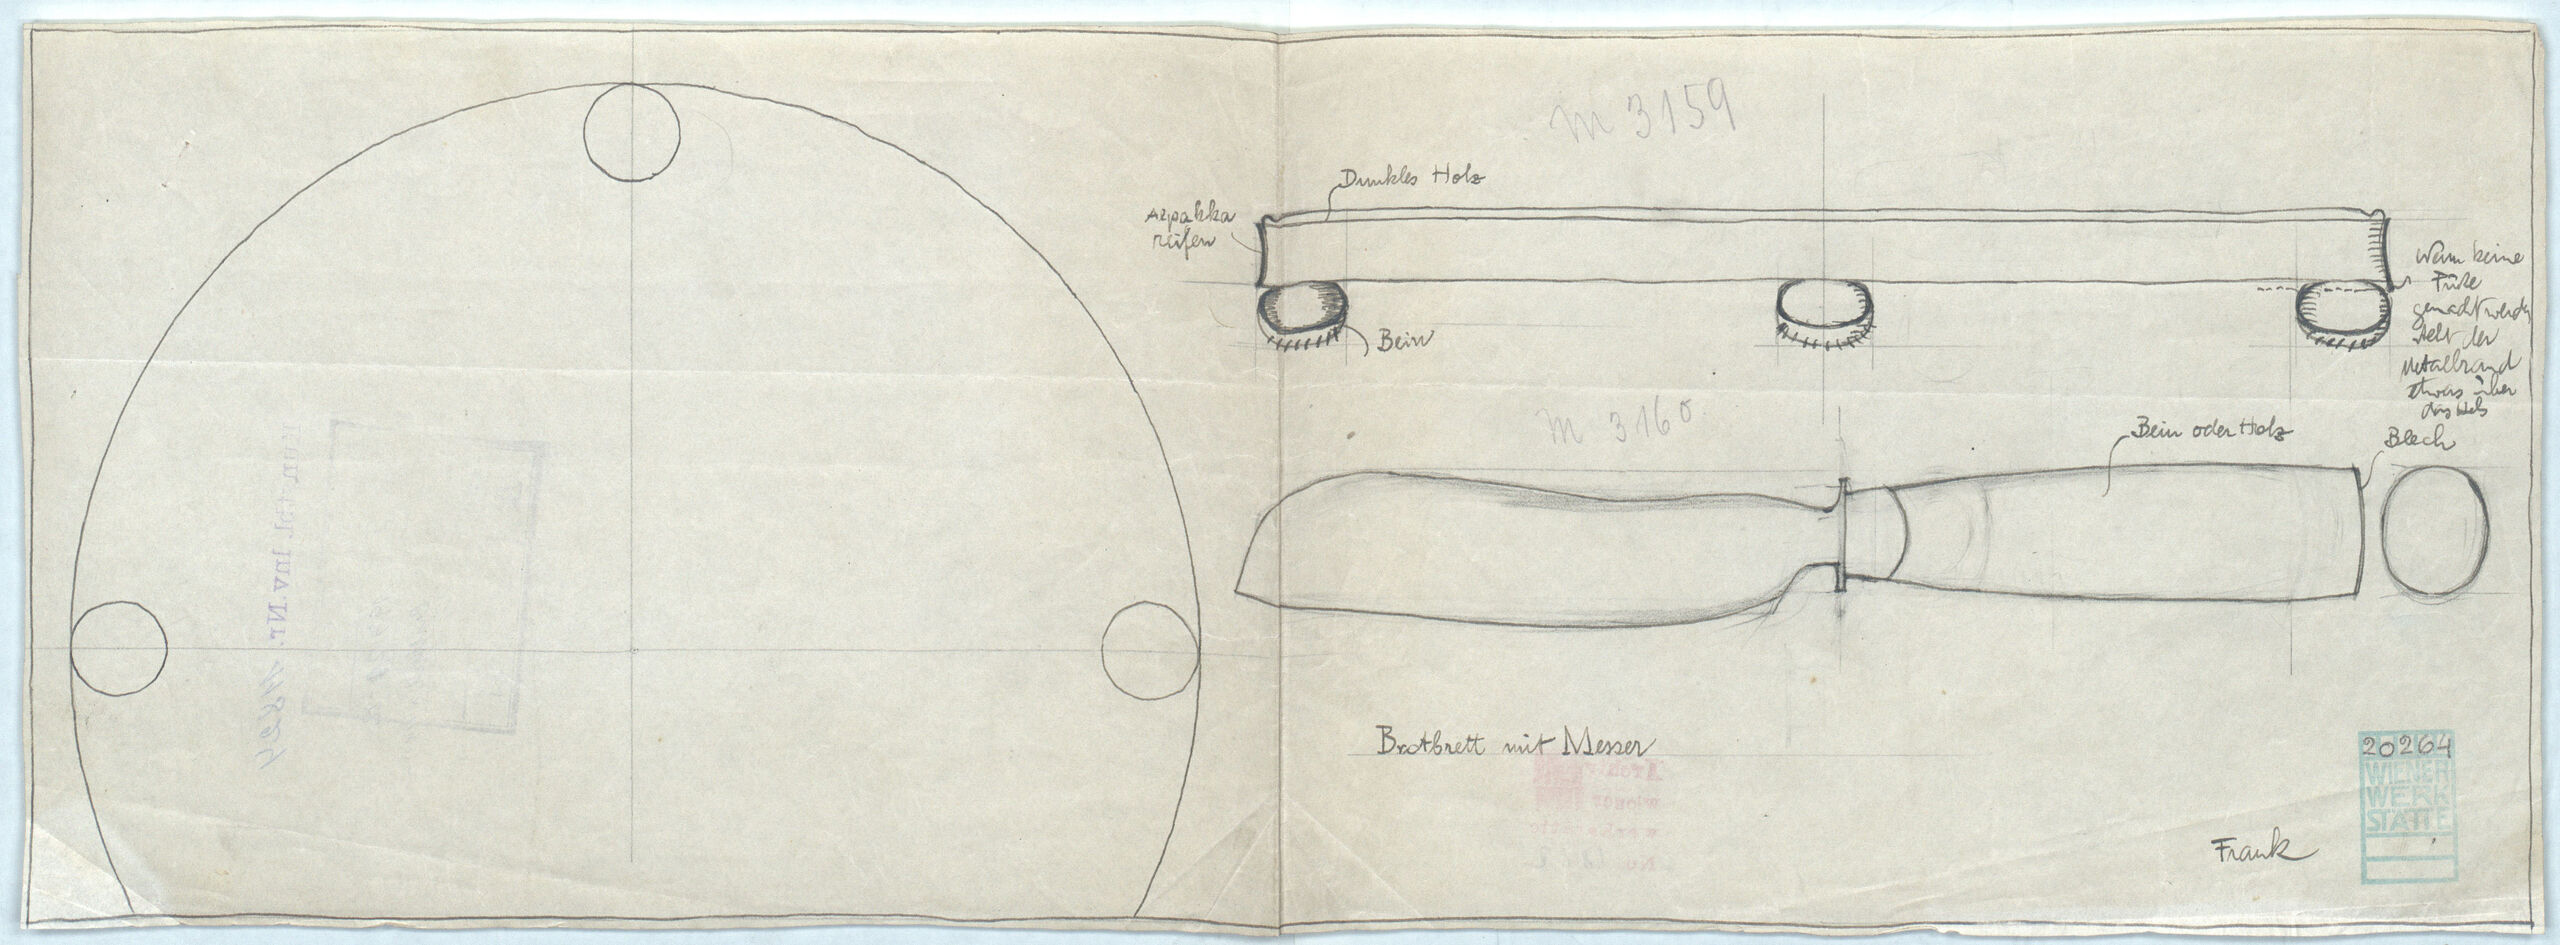 m 3159
Dunkles Holz
Alpakka
reifen
Wenn keine
Füße
gemacht werden
steht der
Metallrand
etwas über
das Holz
Bein
m 3160
Bein oder Holz
Blech
Brotbrett mit Messer
20264
WIENER
WERK
STÄTTE
Frank
Inv. Nr.